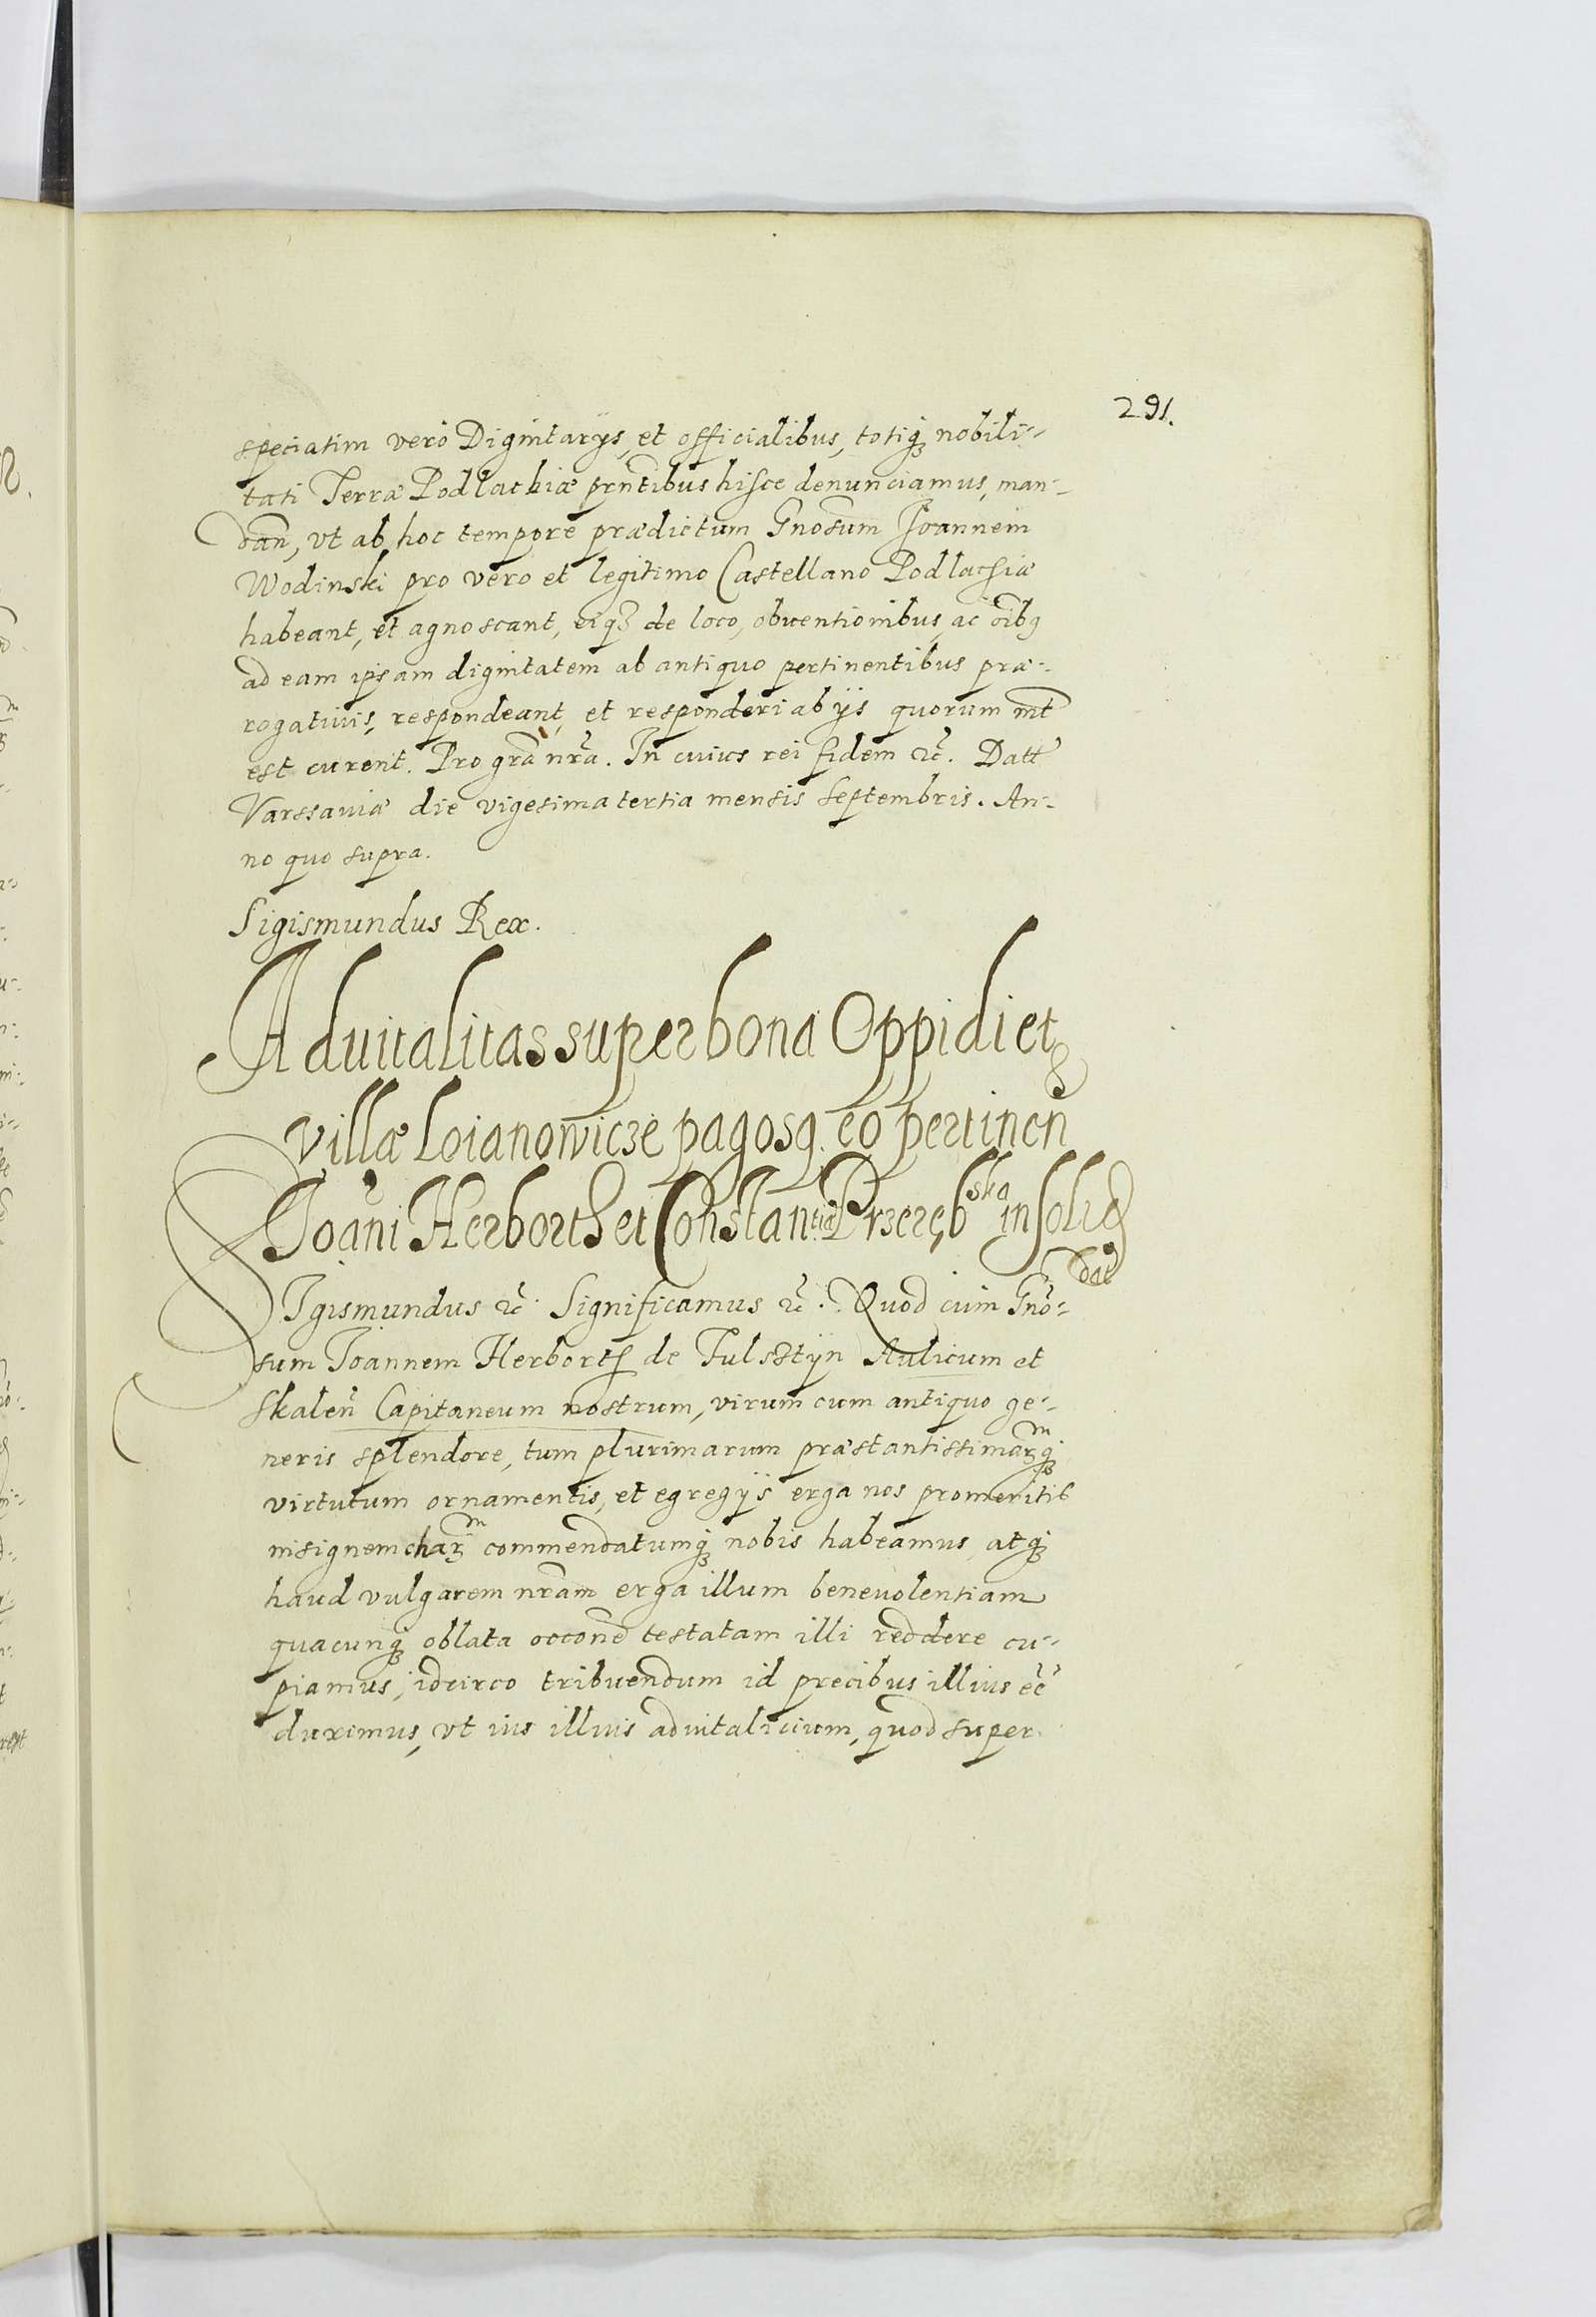 291.
speciatim vero Dignitarijs, et officialibus, totiq₃ nobili-
tati Terræ Podlachiæ prñtibus hisce denunciamus, man-
dañ, vt ab hoc tempore prædictum Gnosum Joannem
Wodinski pro vero et legitimo Castellano Podlachiæ
habeant, et agnoscant, eiq₃ de loco, obuentionibus, ac oĩbꝰ
ad eam ipsam dignitatem ab antiquo pertinentibus præ-
rogatiuis, respondeant, et responderi ab ijs quorum int̃
est curent. Pro grã nrã. In cuius rei fidem ꝛc̃. Datt
Varssauiæ die vigesima tertia mensis Septembris. An-
no quo supra.
Sigismundus Rex.
Aduitalitas super bona Oppidi et
villæ Loianowicze pagosq. eo pertinen
Joañi Herborth et Constantiæ Przerębska in solid
dat
SIgismundus ꝛc̃. Significamus ꝛc̃. Quod cum Gnõ-
sum Joannem Herborth de Fulsztijn Aulicum et
Skaleñ Capitaneum nostrum, virum cum antiquo ge-
neris splendore, tum plurimarum præstantissimarꝫᵐq₃
virtutum ornamentis, et egregijs erga nos promeritis
insignem charꝫᵐ commendatumq₃ nobis habeamus, atq₃
haud vulgarem nrãm erga illum beneuolentiam
quacunq₃ oblata occõne testatam illi reddere cu-
piamus, idcirco tribuendum id precibus illius eẽ
duximus, vt ius illius aduitalicium, quod super